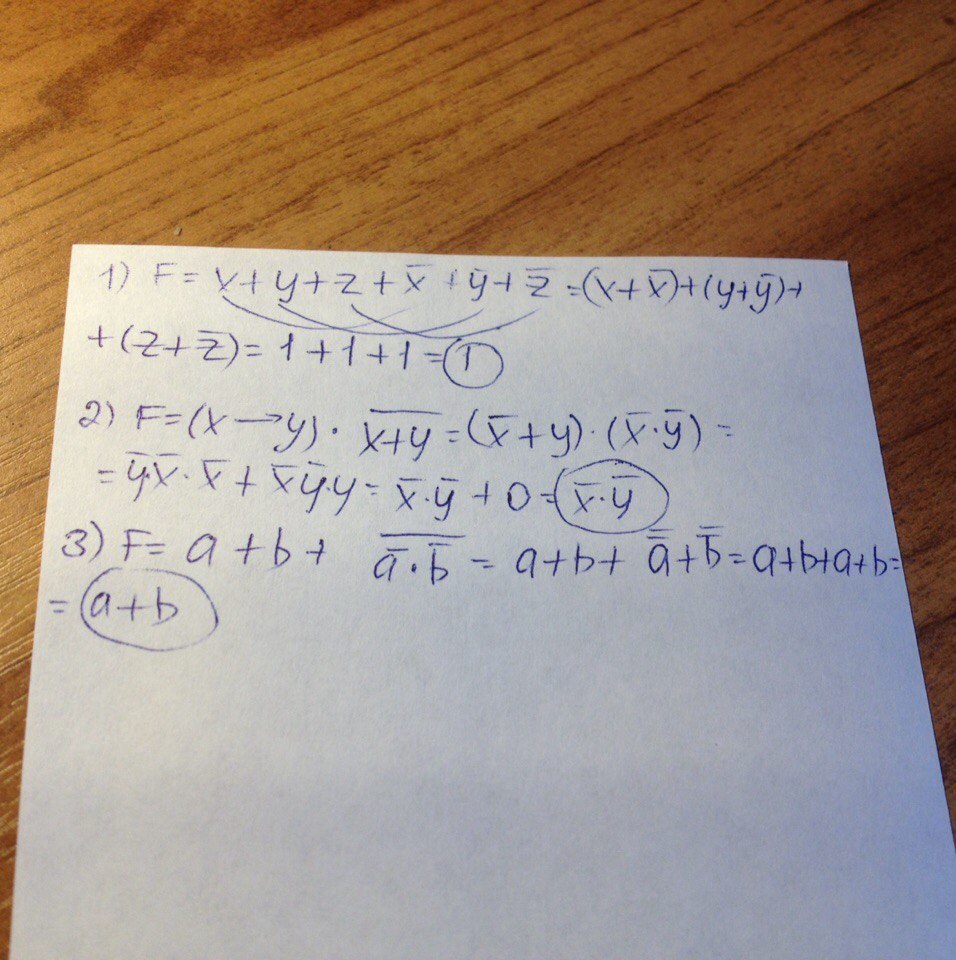 1) F = x + y + z + x̄ + ȳ + z̄ = (x + x̄) + (y + ȳ) +
+ (z + z̄) = 1 + 1 + 1 = 1
2) F = (x → y) · \overline{x + y} = (x̄ + y) · (x̄ · ȳ) =
= ȳ · x̄ · x̄ + x̄ ȳ · y = x̄ · ȳ + 0 = x̄ · ȳ
3) F = a + b + \overline{ā · b̄} = a + b + \overline{ā} + \overline{b̄} = a + b + a + b =
= a + b